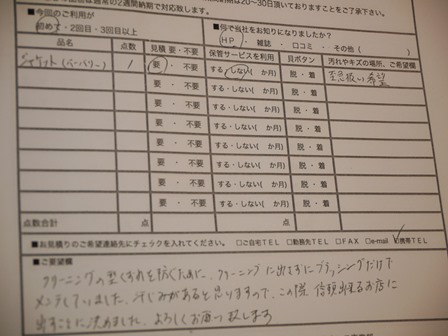 は通常の2週間納期で対応致します。
20～30日頂いておりますことをご了承下さい。
■今回のご利用が
初めて・2回目・3回目以上
■何で当社をお知りになりましたか?
HP ・ 雑誌 ・ 口コミ ・ その他 ( )
品名 点数 見積 要・不要 保管サービスを利用 貝ボタン 汚れやキズの場所、ご希望欄
ジャケット(バーバリー) 1 要 ・ 不要 する・しない( か月) 脱 ・ 着 至急扱い希望
要 ・ 不要 する・しない( か月) 脱 ・ 着
要 ・ 不要 する・しない( か月) 脱 ・ 着
要 ・ 不要 する・しない( か月) 脱 ・ 着
要 ・ 不要 する・しない( か月) 脱 ・ 着
要 ・ 不要 する・しない( か月) 脱 ・ 着
要 ・ 不要 する・しない( か月) 脱 ・ 着
要 ・ 不要 する・しない( か月) 脱 ・ 着
点数合計 点 点
■お見積りのご希望連絡先にチェックを入れてください。 □ご自宅TEL □勤務先TEL □FAX □e-mail ☑携帯TEL
■ご要望欄
クリーニングの型くずれを防ぐために、クリーニングに出さずにブラッシングだけで
メンテしていました。汗じみがあると思いますので、この際、信頼出来るお店に
出すことに決めました。よろしくお願い致します